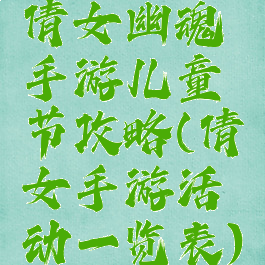 倩女幽魂
手游儿童
节攻略(倩
女手游活
动一览表)